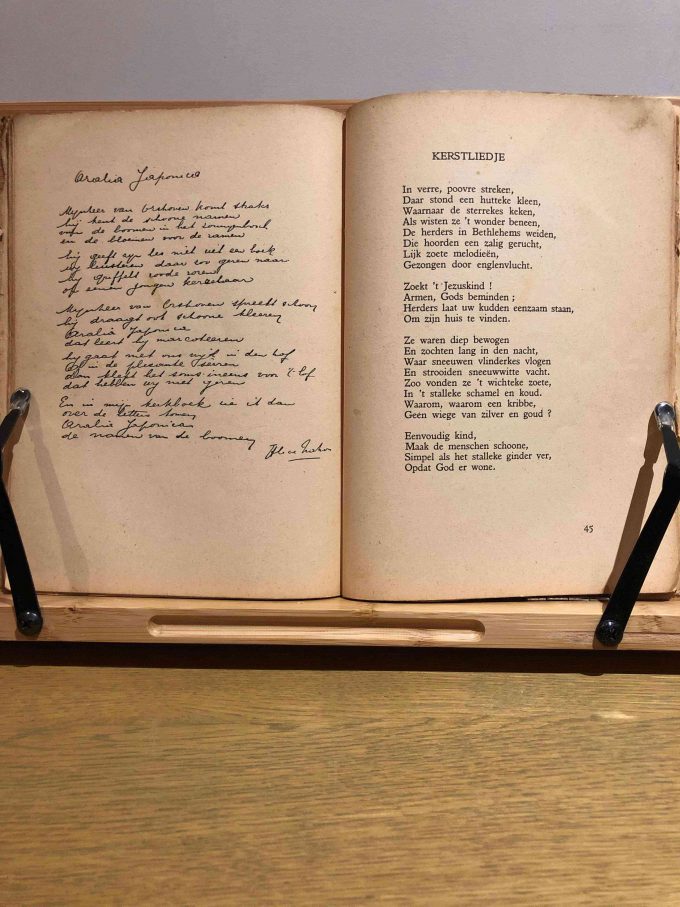 Aralia Japonica
Mynheer van Ershoven komt straks
hij kent de schoone namen
van de boomen in het
en de bloemen voor de ramen
hij geeft zijn les niet uit een boek
wy luisteren daar zoo geren naar
hij griffelt roode rozen
op eenen jongen kerselaar
Mynheer van Ershoven spreekt schoon
hij draagt ook schoone kleeren
Aralia Japonica
dat leert hij marcotteeren
hij gaat met ons wijd in den hof
al in de plezante
dan kleft het soms ineens van 't lof
dat hebben wij niet geren
En in mijn kerkboek zie ik dan
over de letters komen
Aralia Japonica
de namen van de boomen
Alice Nahon
KERSTLIEDJE
In verre, poovre streken,
Daar stond een hutteke kleen,
Waarnaar de sterrekes keken,
Als wisten ze 't wonder beneen,
De herders in Bethlehems weiden,
Die hoorden een zalig gerucht,
Lijk zoete melodieën,
Gezongen door englenvlucht.
Zoekt 't Jezuskind !
Armen, Gods beminden ;
Herders laat uw kudden eenzaam staan,
Om zijn huis te vinden.
Ze waren diep bewogen
En zochten lang in den nacht,
Waar sneeuwen vlinderkes vlogen
En strooiden sneeuwwitte vacht.
Zoo vonden ze 't wichteke zoete,
In 't stalleke schamel en koud.
Waarom, waarom een kribbe,
Geén wiege van zilver en goud ?
Eenvoudig kind,
Maak de menschen schoone,
Simpel als het stalleke ginder ver,
Opdat God er wone.
45